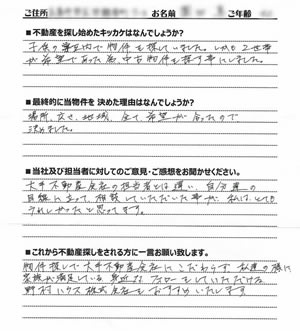 ご住所 お名前 ご年齢
■不動産を探し始めたキッカケはなんでしょうか?
子供の 物件を探していました。しかし2世帯
が希望であった為、中古物件も探す事にしました。
■最終的に当物件を 決めた理由はなんでしょうか?
場所、広さ、地域、全て、希望が合ったので
決めました。
■当社及び担当者に対してのご意見・ご感想をお聞かせください。
大手不動産会社の担当者とは違い、自分達の
目線に立って、相談していただいた事が、私はとても
うれしかったと思ってます。
■これから不動産探しをされる方に一言お願い致します。
物件探しで大手不動産会社にこだわらず、私達の様に
家族が満足している 身近な フォローをしていただける
野村ハウス株式会社をおすすめいたします